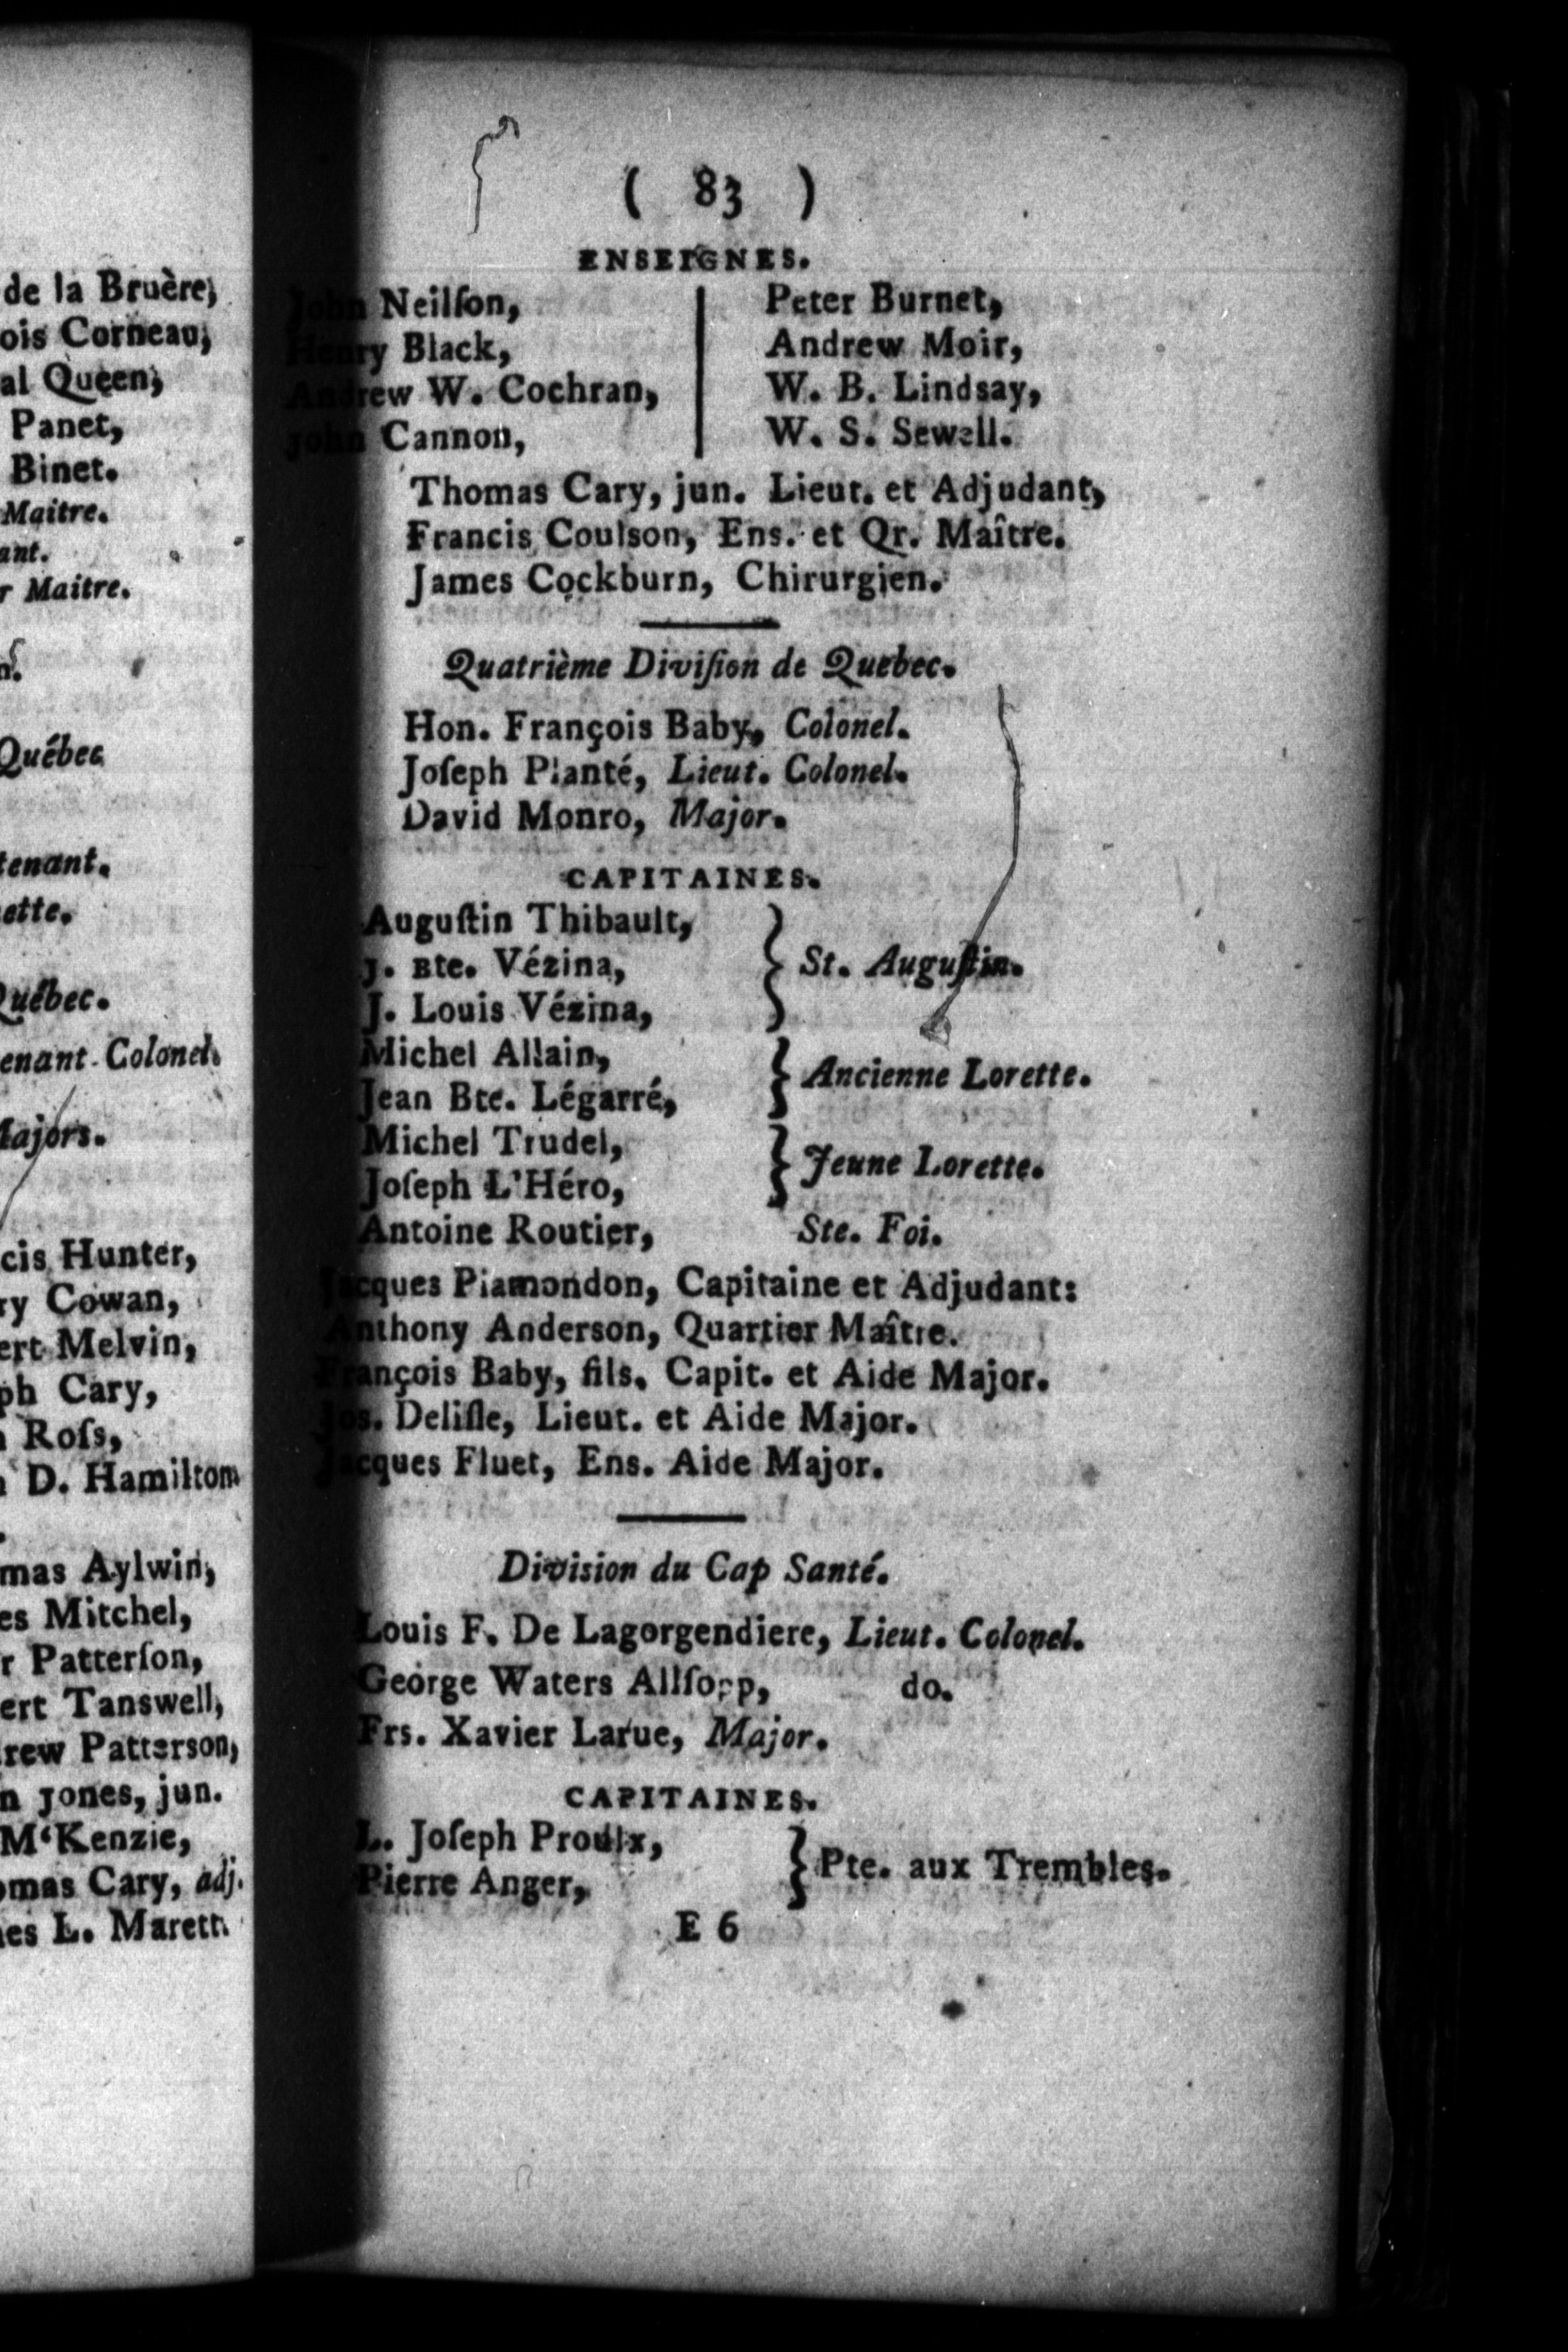 de la Bruère,
ois Corneau,
al Queen,
Panet,
Binet.
Maitre.
ant.
r Maitre.
n.
Québec
tenant.
ette.
Québec.
enant Colonel.
Majors.
cis Hunter,
ry Cowan,
ert Melvin,
ph Cary,
Roſs,
D. Hamilton
mas Aylwin,
es Mitchel,
r Patterſon,
ert Tanswell,
rew Patterson,
n Jones, jun.
M‘Kenzie,
omas Cary, adj.
es L. Marett.
( 83 )
ENSEIGNES.
John Neilſon,
Henry Black,
Andrew W. Cochran,
John Cannon,
Peter Burnet,
Andrew Moir,
W. B. Lindsay,
W. S. Sewell.
Thomas Cary, jun. Lieut. et Adjudant,
Francis Coulson, Ens. et Qr. Maître.
James Cockburn, Chirurgien.
Quatrième Diviſion de Quebec.
Hon. François Baby, Colonel.
Joſeph Planté, Lieut. Colonel.
David Monro, Major.
CAPITAINES.
Auguſtin Thibault,
J. Bte. Vézina,
J. Louis Vézina,
} St. Auguſtin.
Michel Allain,
Jean Bte. Légarré,
} Ancienne Lorette.
Michel Trudel,
Joſeph L'Héro,
} Jeune Lorette.
Antoine Routier, Ste. Foi.
Jacques Plamondon, Capitaine et Adjudant:
Anthony Anderson, Quartier Maître.
François Baby, fils. Capit. et Aide Major.
Jos. Deliſle, Lieut. et Aide Major.
Jacques Fluet, Ens. Aide Major.
Division du Cap Santé.
Louis F. De Lagorgendiere, Lieut. Colonel.
George Waters Allſopp, do.
Frs. Xavier Larue, Major.
CAPITAINES.
L. Joſeph Proulx,
Pierre Anger,
} Pte. aux Trembles.
E 6